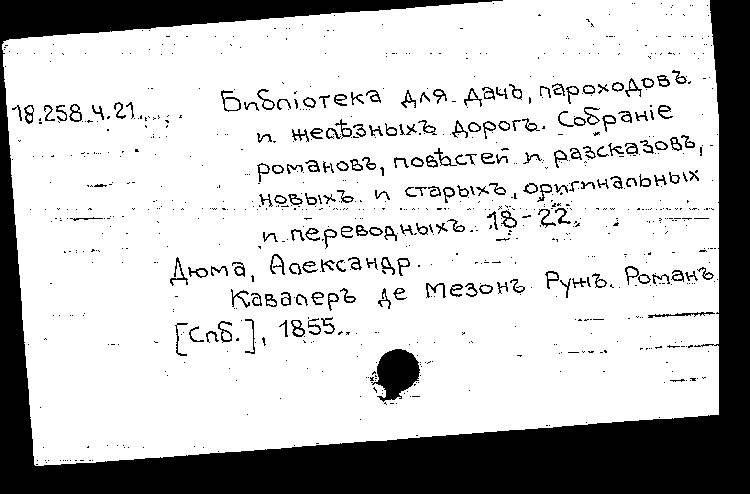 18.258.4.21. Библіотека для дачъ, пароходовъ
и желѣзныхъ дорогъ. Собраніе
романовъ, повѣстей и разсказовъ,
новыхъ и старыхъ, оригинальныхъ
и переводныхъ. 18-22.
Дюма, Александр.
Кавалеръ де Мезонъ Ружъ. Романъ
[Спб.], 1855.